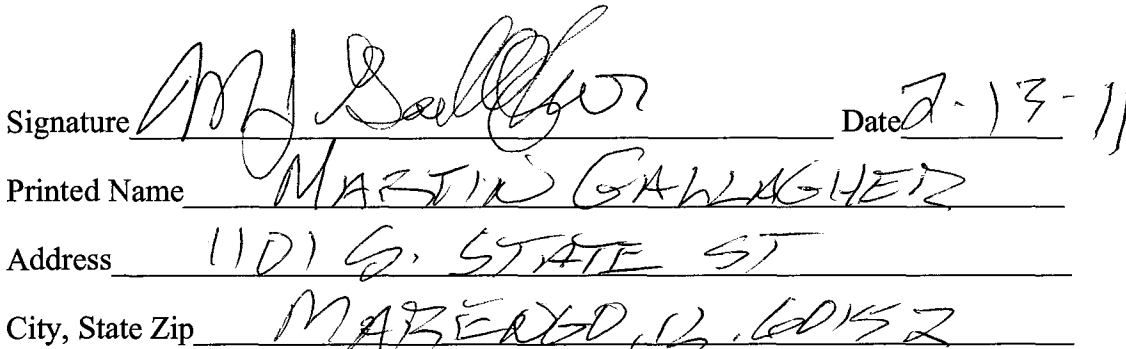 Signature MJ Gallagher Date 2-13-11
Printed Name MARTIN GALLAGHER
Address 1101 S. STATE ST
City, State Zip MARENGO, IL. 60152